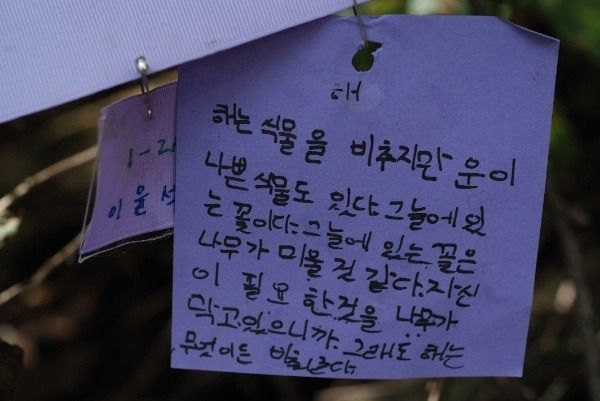 해
해는 식물을 비추지만 운이
나쁜 식물도 있다. 그늘에 있
는 꽃이다. 그늘에 있는 꽃은
나무가 미울 것 같다. 자신
이 필요한 것을 나무가
막고있으니까. 그래도 해는
무엇이든 비춘다.
1-2
이윤석